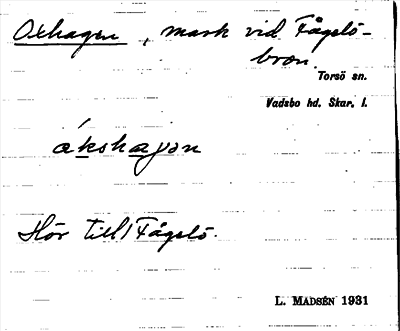 Oxhagen, mark vid Fågelö-
bron.
Torsö sn.
Vadsbo hd. Skar. l.
ókshaɡən
Hör till Fågelö.
L. MADSÉN 1931